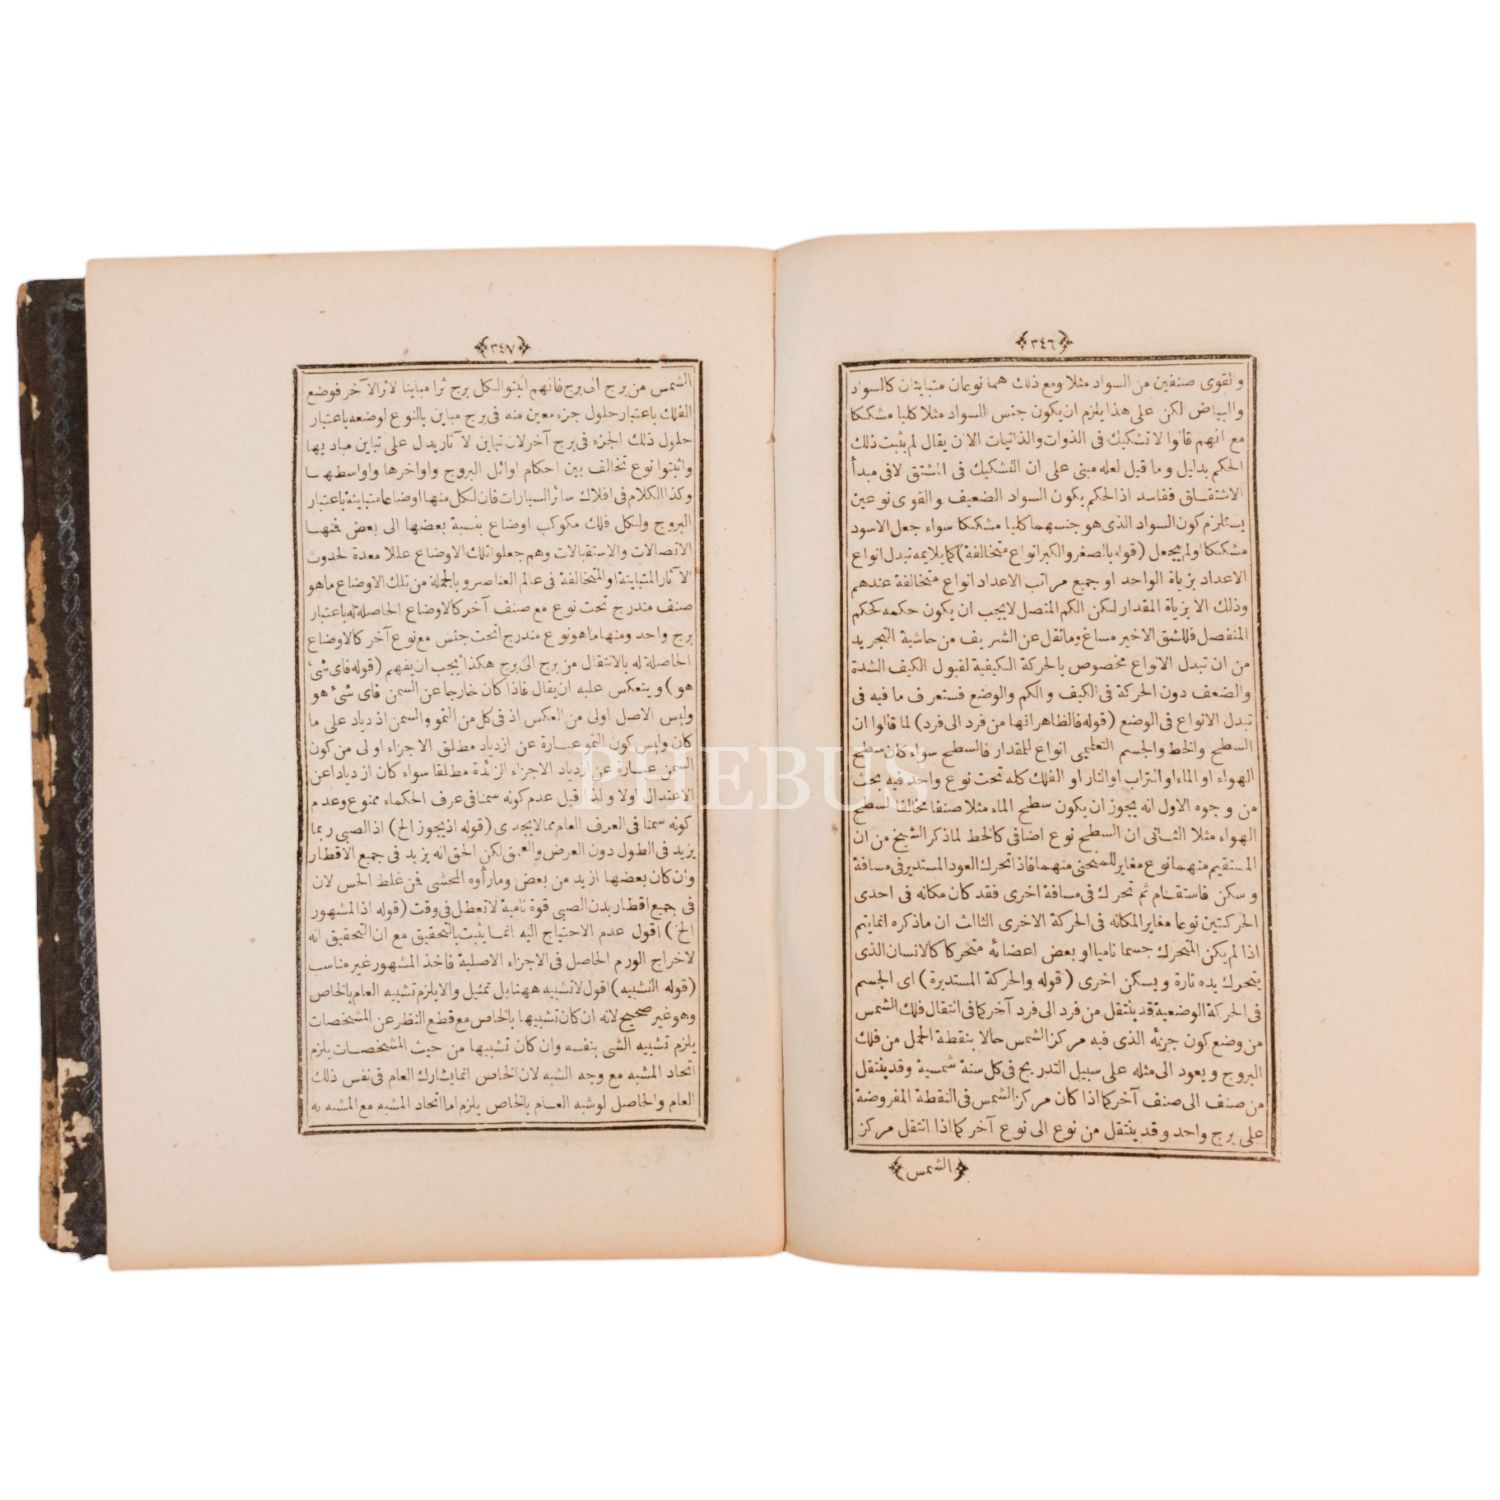 ﴿٣٤٦﴾
والقوى صنفين من السواد مثلا ومع ذلك هما نوعان متباينان كالسواد
والبياض لكن على هذا يلزم ان يكون جنس السواد مثلا كليا مشككا
مع انهم قالوا لا تشكيك فى الذوات والذاتيات الا ان يقال لم يثبت ذلك
الحكم بدليل وما قيل لعله مبنى على ان التشكيك فى المشتق لا فى مبدأ
الاشتقاق ففاسد اذ الحكم بكون السواد الضعيف والقوى نوعين
يستلزم كون السواد الذى هو جنسهما كليا مشككا سواء جعل الاسود
مشككا ولم يجعل (قوله بالصغر والكبر انواع متخالفة) كما يلايمه تبدل انواع
الاعداد بزيادة الواحد او جميع مراتب الاعداد انواع متخالفة عندهم
وذلك الا بزيادة المقدار لكن الكم المتصل لا يجب ان يكون حكمه كحكم
المنفصل فللشق الاخير مساغ وما نقل عن الشريف من حاشية التجريد
من ان تبدل الانواع مخصوص بالحركة الكيفية لقبول الكيف الشدة
والضعف دون الحركة فى الكيف والكم والوضع فستعرف ما فيه فى
تبدل الانواع فى الوضع (قوله فالظاهر انها من فرد الى فرد) لما قالوا ان
السطح والخط والجسم التعليمى انواع للمقدار فالسطح سواء كان سطح
الهواء او الماء او التراب او النار او الفلك كله تحت نوع واحد فيه بحث
من وجوه الاول انه يجوز ان يكون سطح الماء مثلا صنفا مخالفا لسطح
الهواء مثلا الثانى ان السطح نوع اضافى كالخط لما ذكر الشيخ من ان
المستقيم منهما نوع مغاير للمنحنى منهما فاذا تحرك العود المستدير فى مسافة
وسكن فاستقام ثم تحرك فى مسافة اخرى فقد كان مكانه فى احدى
الحركتين نوعا مغاير المكانه فى الحركة الاخرى الثالث ان ما ذكره انما يتم
اذا لم يكن المتحرك جسما ناميا او بعض اعضائه متحركا كالانسان الذى
يتحرك يده تارة ويسكن اخرى (قوله والحركة المستديرة) اى الجسم
فى الحركة الوضعية قد ينتقل من فرد الى فرد آخر كما فى انتقال فلك الشمس
من وضع كون جزئه الذى فيه مركز الشمس حالا بنقطة الحمل من فلك
البروج ويعود الى مثله على سبيل التدريج فى كل سنة شمسية وقد ينتقل
من صنف الى صنف آخر كما اذا كان مركز الشمس فى النقطة المفروضة
على برج واحد وقد ينتقل من نوع الى نوع آخر كما اذا انتقل مركز
﴿الشمس﴾
﴿٣٤٧﴾
الشمس من برج الى برج فانهم اثبتوا لكل برج اثرا مباينا لاثر الآخر فوضع
الفلك باعتبار حلول جزء معين منه فى برج مباين بالنوع لوضعه باعتبار
حلول ذلك الجزء فى برج آخر لان تباين الآثار يدل على تباين مباديها
واثبتوا نوع تخالف بين احكام اوائل البروج واواخرها واواسطها
وكذا الكلام فى افلاك سائر السيارات فان لكل منها اوضاعا متباينة باعتبار
البروج ولكل فلك مكوكب اوضاع بنسبة بعضها الى بعض فمنها
الاتصالات والاستقبالات وهم جعلوا تلك الاوضاع عللا معدة لحدوث
الآثار المتباينة او المتخالفة فى عالم العناصر وبالجملة من تلك الاوضاع ما هو
صنف مندرج تحت نوع مع صنف آخر كالاوضاع الحاصلة له باعتبار
برج واحد ومنها ما هو نوع مندرج تحت جنس مع نوع آخر كالاوضاع
الحاصلة له بالانتقال من برج الى برج هكذا يجب ان يفهم (قوله فاى شئ
هو) وينعكس عليه ان يقال فاذا كان خارجا عن السمن فاى شئ هو
وليس الاصل اولى من العكس اذ فى كل من النمو والسمن ازدياد على ما
كان وليس كون النمو عبارة عن ازدياد مطلق الاجزاء اولى من كون
السمن عبارة عن ازدياد الاجزاء الزائدة مطلقا سواء كان ازديادا عن
الاعتدال اولا ولذا قيل عدم كونه سمنا فى عرف الحكماء ممنوع وعدم
كونه سمنا فى العرف العام مما لا يجدى (قوله اذ يجوز الخ) اذ الصبى ربما
يزيد فى الطول دون العرض والعمق لكن الحق انه يزيد فى جميع الاقطار
وان كان بعضها ازيد من بعض وما رأوه المحشى فمن غلط الحس لان
فى جميع اقطار بدن الصبى قوة نامية لا تعطل فى وقت (قوله اذ المشهور
الخ) اقول عدم الاحتياج اليه انما يثبت بالتحقيق مع ان التحقيق انه
لاخراج الورم الحاصل فى الاجزاء الاصلية فاخذ المشهور غير مناسب
(قوله التشبيه) اقول لا تشبيه ههنا بل تمثيل والا يلزم تشبيه العام بالخاص
وهو غير صحيح لانه ان كان تشبيها بالخاص مع قطع النظر عن المشخصات
يلزم تشبيه الشى بنفسه وان كان تشبيها من حيث المشخصات يلزم
اتحاد المشبه مع وجه الشبه لان الخاص انما يشارك العام فى نفس ذلك
العام والحاصل لو شبه العام بالخاص يلزم اما اتحاد المشبه مع المشبه به
PHEBUS